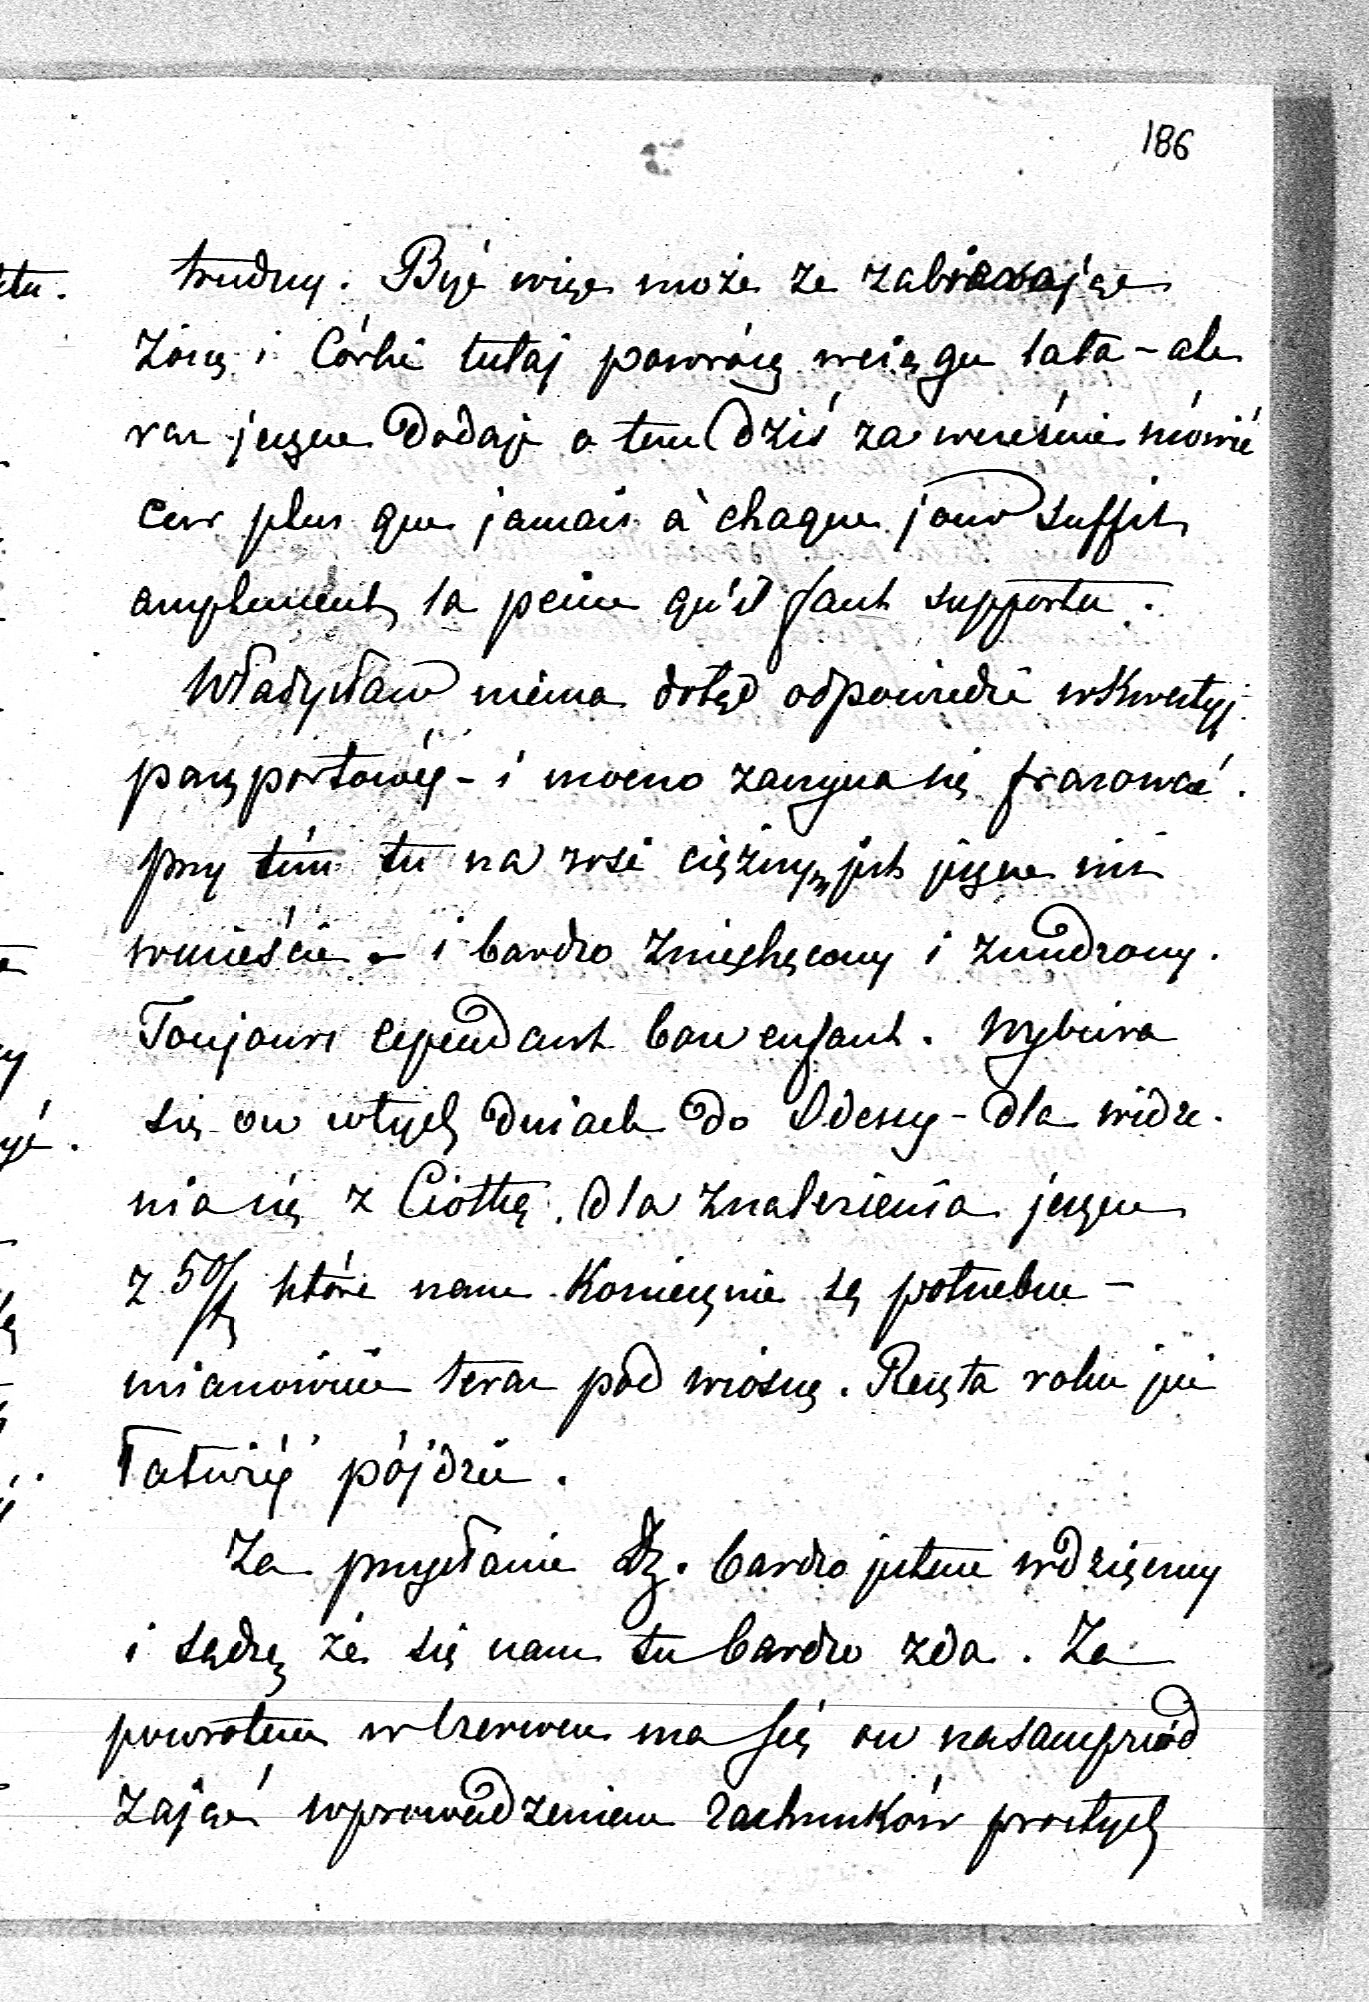 186
trudny. Być więc może że zabierając
żonę i Córki tutaj powrócę wciągu lata – ale
raz jeszcze dodaję o tem dziś za wcześnie mówić
car plus que jamais à chaque jour suffit
amplement la peine qu'il faut supporter.
Władysław niema dotąd odpowiedzi wkwestyj
paszportowéj – i mocno zaczyna się frasować.
przy tém tu na wsi cięższy jak jeszcze niż
wmieście – i bardzo zniechęcony i znudzony.
Toujours cependant bon enfant. Wybiera
się on wtych dniach do Odessy – dla widze-
nia się z Ciotką. dla znalezienia jeszcze
z 50/ które nam koniecznie są potrzebne –
mianowicie teraz pod wiosnę. Reszta roku już
łatwiéj pójdzie.
Za przysłanie bardzo jestem wdzięczny
i sądzę że się nam tu bardzo zda. Za
powrotem w Czerwcu ma się on nasamprzód
zająć wprowadzeniem rachunków prostych